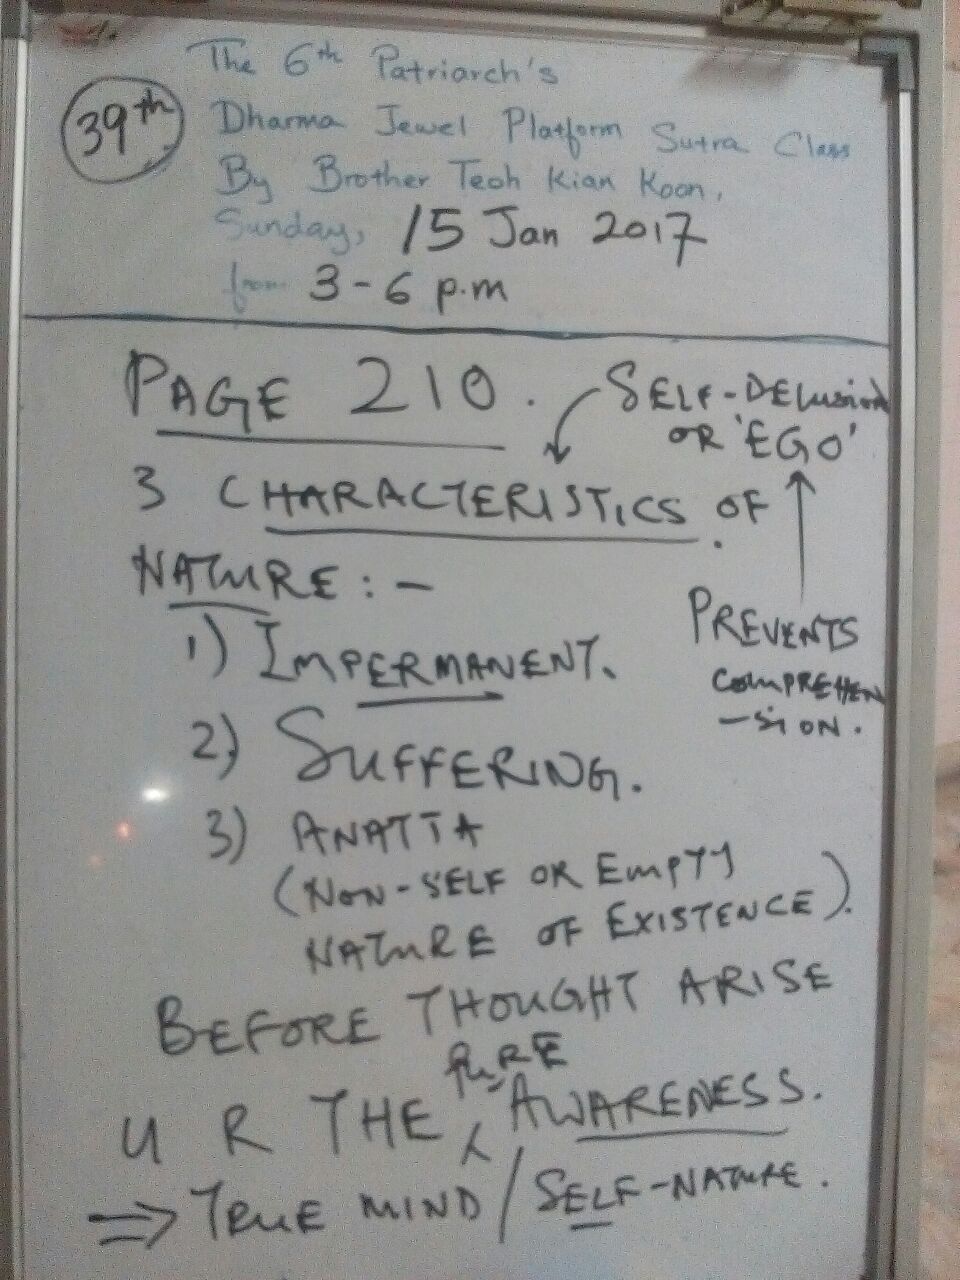 39th
The 6th Patriarch's
Dharma Jewel Platform Sutra Class
By Brother Teoh Kian Koon,
Sunday, 15 Jan 2017
from 3-6 p.m
PAGE 210.
SELF-DELusion
OR 'EGO'
3 CHARACTERISTICS OF
NATURE :-
PREVENTS
COMPREHEN
-SION.
1) IMPERMANENT.
2) SUFFERING.
3) ANATTA
(NON-SELF OR EMPTY
NATURE OF EXISTENCE).
BEFORE THOUGHT ARISE
U R THE PuRE AWARENESS.
⇒ TRUE MIND / SELF-NATURE.